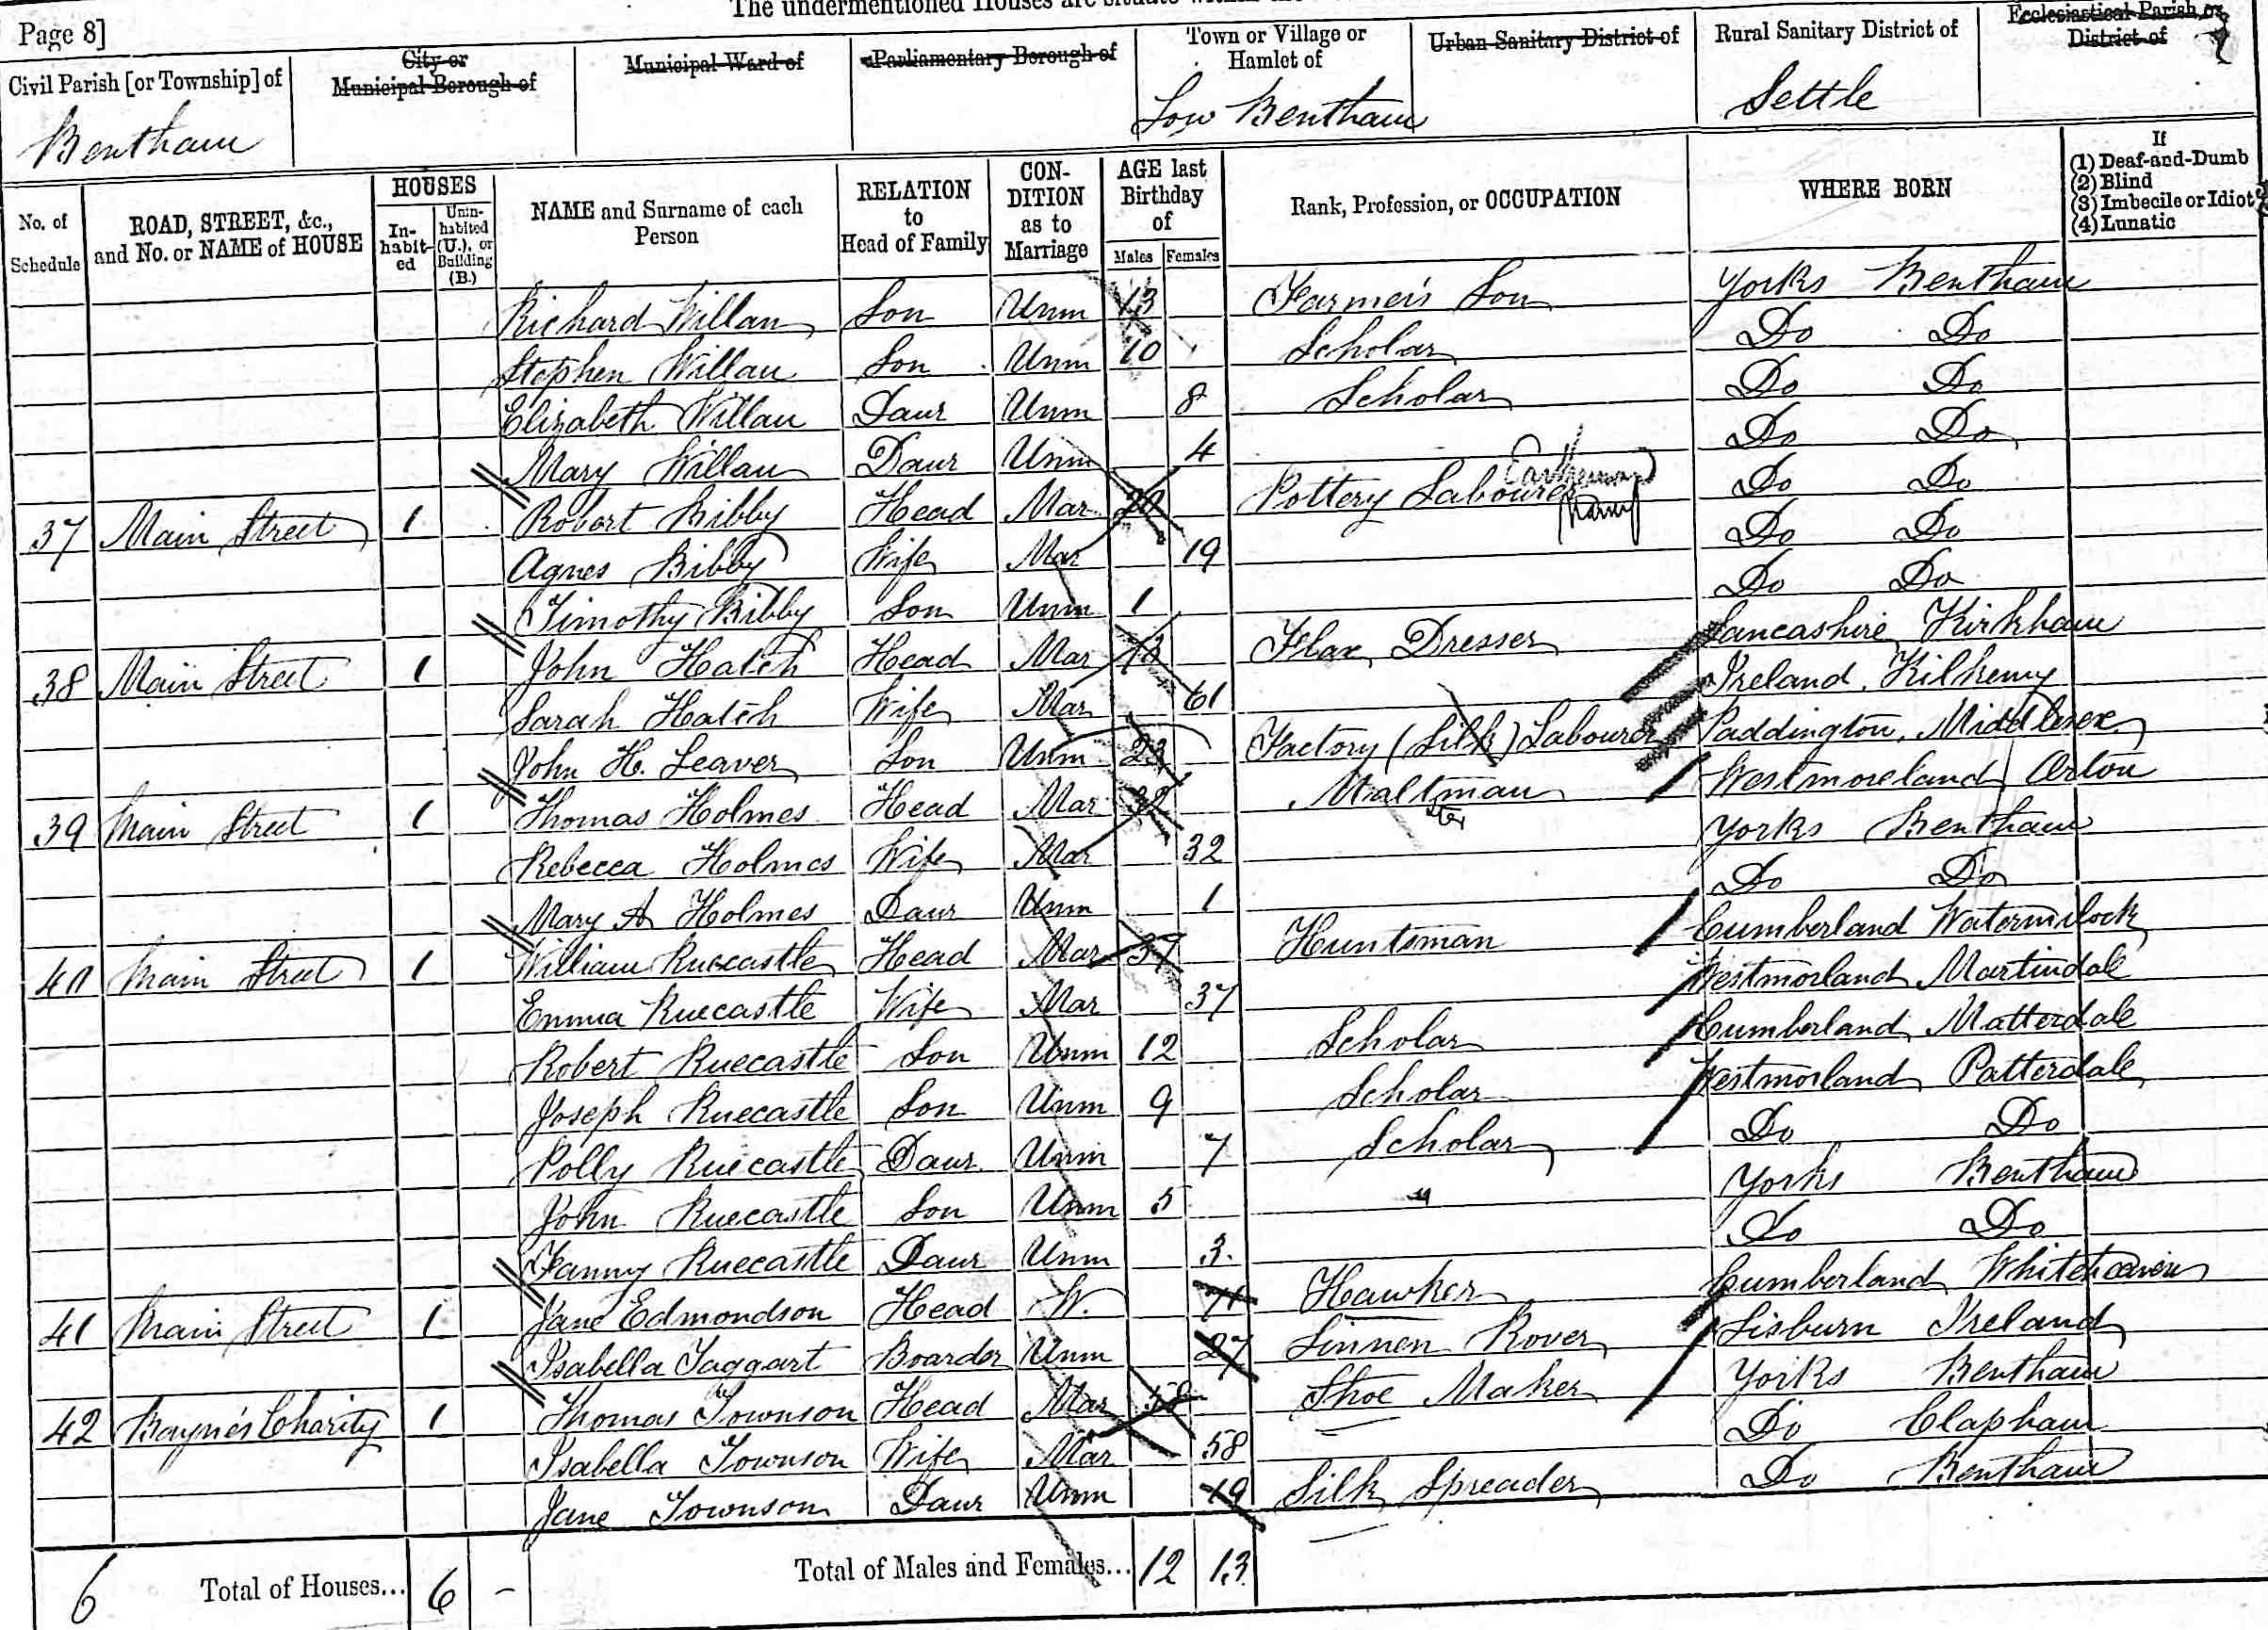 The undermentioned Houses are situate within the
Page 8]
Civil Parish [or Township] of
City or Municipal Borough of
Municipal Ward of
Parliamentary Borough of
Town or Village or Hamlet of
Urban Sanitary District of
Rural Sanitary District of
Ecclesiastical Parish or District of
Bentham Low Bentham Settle
No. of Schedule
ROAD, STREET, &c., and No. or NAME of HOUSE
HOUSES
In-habit-ed
Unin-habited (U.), or Building (B.)
NAME and Surname of each Person
RELATION to Head of Family
CON-DITION as to Marriage
AGE last Birthday of
Males Females
Rank, Profession, or OCCUPATION
WHERE BORN
If
(1) Deaf-and-Dumb
(2) Blind
(3) Imbecile or Idiot
(4) Lunatic
Richard Willan Son Unm 13 Farmer's Son Yorks Bentham
Stephen Willan Son Unm 10 Scholar Do Do
Elizabeth Willan Daur Unm 8 Scholar Do Do
Mary Willan Daur Unm 4 Do Do
37 Main Street 1 Robert Bibby Head Mar Pottery Labourer Do Do
Agnes Bibby Wife Mar 19 Do Do
Timothy Bibby Son Unm 1 Do Do
38 Main Street 1 John Hatch Head Mar 73 Flax Dresser Lancashire Kirkham
Sarah Hatch Wife Mar 61 Ireland, Kilkenny
John H. Leaver Son Unm 23 Factory (Silk) Labourer Paddington, Middlesex
39 Main Street 1 Thomas Holmes Head Mar 32 Maltman Westmoreland Orton
Rebecca Holmes Wife Mar 32 Yorks Bentham
Mary A Holmes Daur Unm 1 Do Do
40 Main Street 1 William Ruecastle Head Mar 37 Huntsman Cumberland Watermilock
Emma Ruecastle Wife Mar 37 Westmorland Martindale
Robert Ruecastle Son Unm 12 Scholar Cumberland Matterdale
Joseph Ruecastle Son Unm 9 Scholar Westmorland Patterdale
Polly Ruecastle Daur Unm 7 Scholar Do Do
John Ruecastle Son Unm 5 " Yorks Bentham
Fanny Ruecastle Daur Unm 3 Do Do
41 Main Street 1 Jane Edmondson Head W. 71 Hawker Cumberland Whitehaven
Isabella Taggart Boarder Unm 27 Linnen Rover Lisburn Ireland
42 Bayne's Charity 1 Thomas Townson Head Mar 58 Shoe Maker Yorks Bentham
Isabella Townson Wife Mar 58 Do Clapham
Jane Townson Daur Unm 19 Silk Spreader Do Bentham
6 Total of Houses... 6 – Total of Males and Females... 12 13